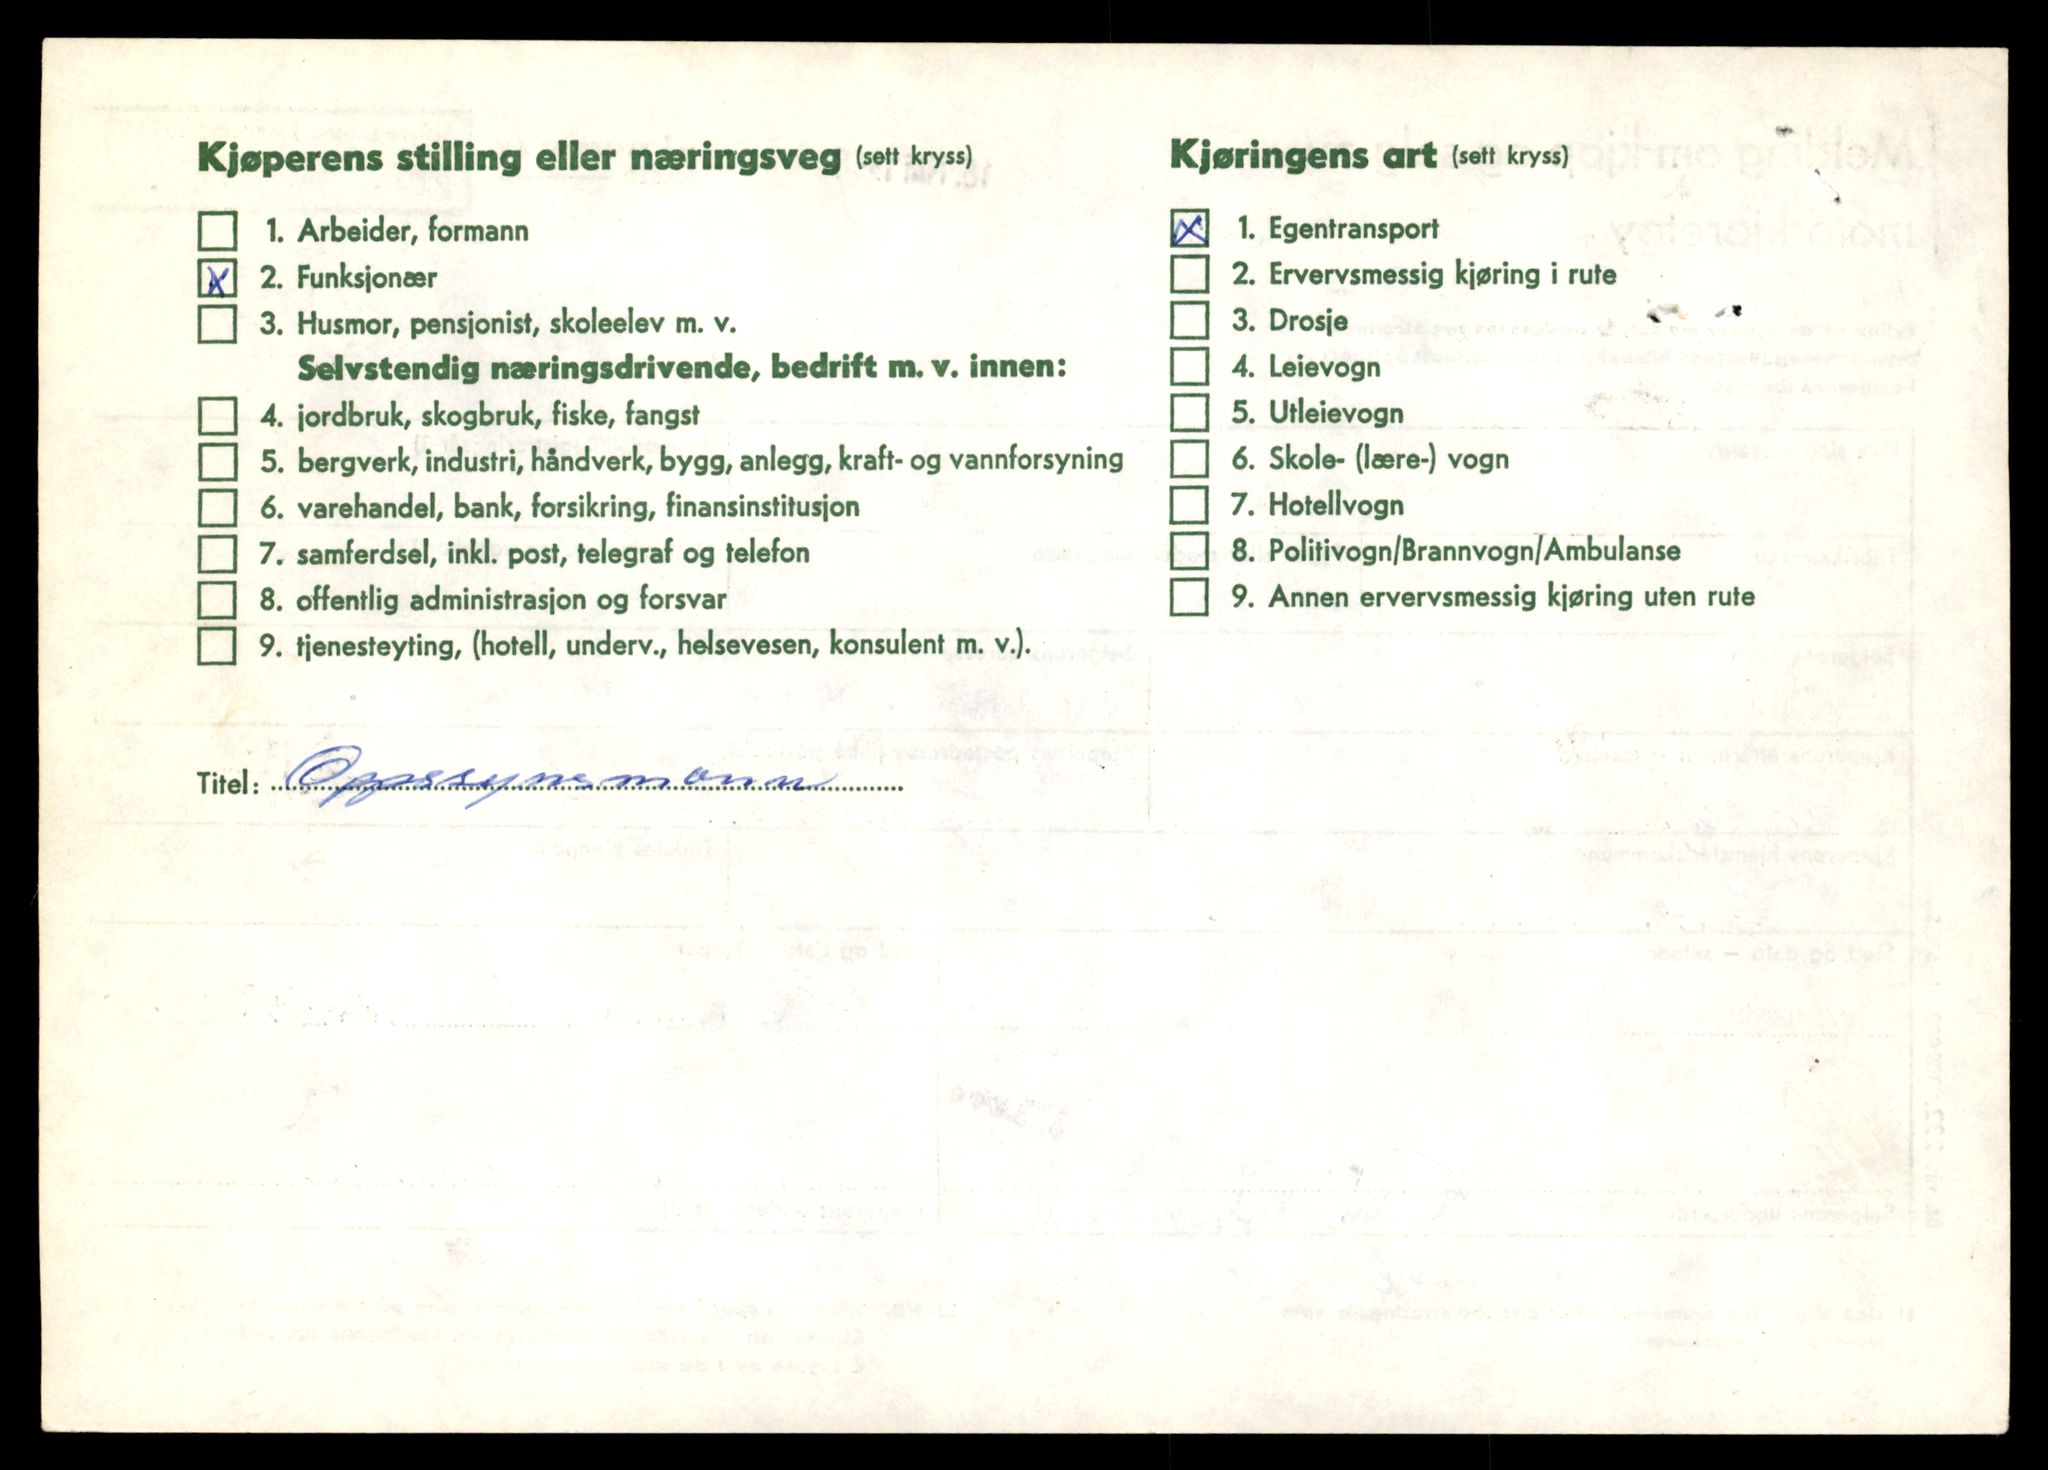 Kjøperens stilling eller næringsveg (sett kryss)
1. Arbeider, formann
X 2. Funksjonær
3. Husmor, pensjonist, skoleelev m. v.
Selvstendig næringsdrivende, bedrift m. v. innen:
4. jordbruk, skogbruk, fiske, fangst
5. bergverk, industri, håndverk, bygg, anlegg, kraft- og vannforsyning
6. varehandel, bank, forsikring, finansinstitusjon
7. samferdsel, inkl. post, telegraf og telefon
8. offentlig administrasjon og forsvar
9. tjenesteyting, (hotell, underv., helsevesen, konsulent m. v.).
Titel: Oppsynsmann
Kjøringens art (sett kryss)
X 1. Egentransport
2. Ervervsmessig kjøring i rute
3. Drosje
4. Leievogn
5. Utleievogn
6. Skole- (lære-) vogn
7. Hotellvogn
8. Politivogn/Brannvogn/Ambulanse
9. Annen ervervsmessig kjøring uten rute